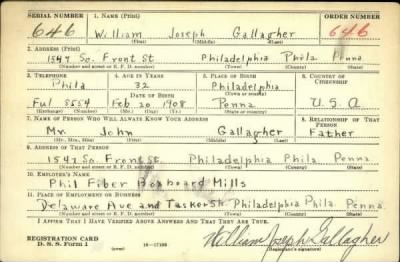 SERIAL NUMBER 1. NAME (Print) ORDER NUMBER
646 William Joseph Gallagher 646
(First) (Middle) (Last)
2. ADDRESS (Print)
1547 So. Front St Philadelphia Phila Penna
(Number and street or R. F. D. number) (Town) (County) (State)
3. TELEPHONE 4. AGE IN YEARS 5. PLACE OF BIRTH 6. COUNTRY OF CITIZENSHIP
Phila 32 Philadelphia
DATE OF BIRTH (Town or county)
Ful 5554 Feb 20 1908 Penna U.S.A
(Exchange) (Number) (Mo.) (Day) (Yr.) (State or country)
7. NAME OF PERSON WHO WILL ALWAYS KNOW YOUR ADDRESS 8. RELATIONSHIP OF THAT PERSON
Mr. John Gallagher Father
(Mr., Mrs., Miss) (First) (Middle) (Last)
9. ADDRESS OF THAT PERSON
1547 So. Front St. Philadelphia Phila Penna.
(Number and street or R. F. D. number) (Town) (County) (State)
10. EMPLOYER'S NAME
Phil Fiber Boxboard Mills
11. PLACE OF EMPLOYMENT OR BUSINESS
Delaware Ave and Tasker St. Philadelphia Phila Penna
(Number and street or R. F. D. number) (Town) (County) (State)
I AFFIRM THAT I HAVE VERIFIED ABOVE ANSWERS AND THAT THEY ARE TRUE.
REGISTRATION CARD
D. S. S. Form 1 (over) 16—17105
William Joseph Gallagher
(Registrant's signature)